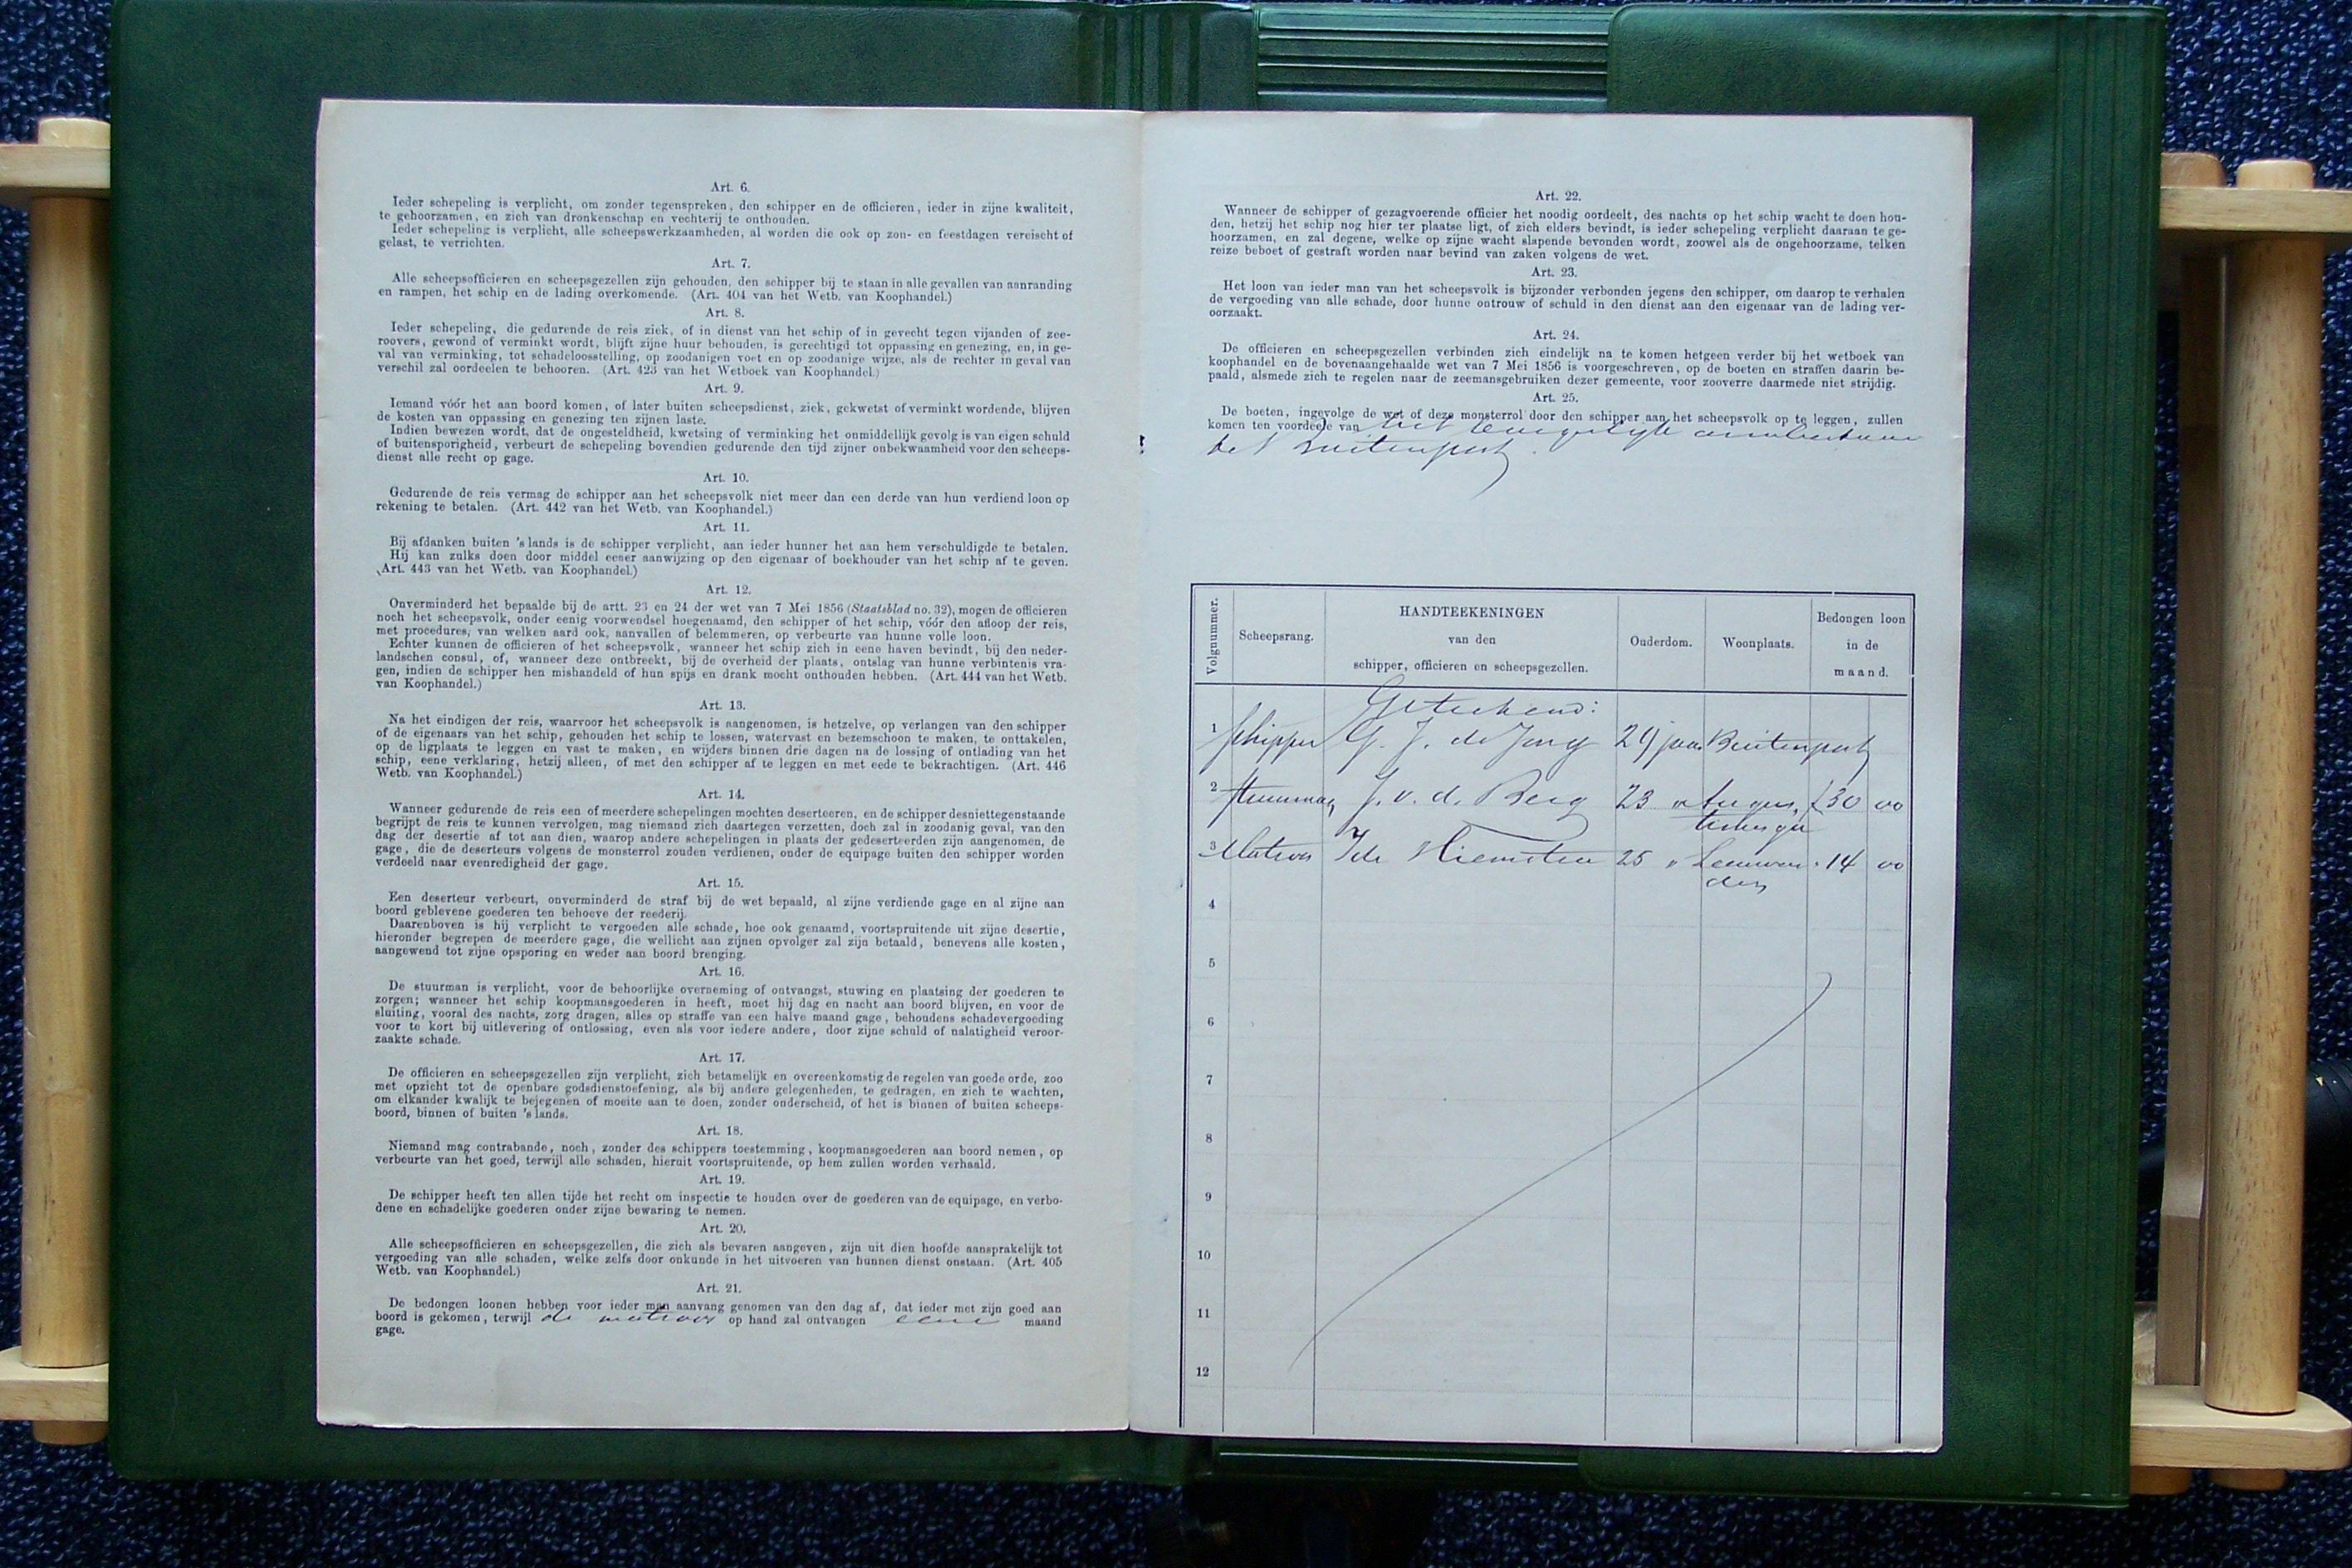 Art. 6.
Ieder schepeling is verplicht, om zonder tegenspreken, den schipper en de officieren, ieder in zijne kwaliteit,
te gehoorzamen, en zich van dronkenschap en vechterij te onthouden.
Ieder schepeling is verplicht, alle scheepswerkzaamheden, al worden die ook op zon- en feestdagen vereischt of
gelast, te verrichten.
Art. 7.
Alle scheepsofficieren en scheepsgezellen zijn gehouden, den schipper bij te staan in alle gevallen van aanranding
en rampen, het schip en de lading overkomende. (Art. 404 van het Wetb. van Koophandel.)
Art. 8.
Ieder schepeling, die gedurende de reis ziek, of in dienst van het schip of in gevecht tegen vijanden of zee-
roovers, gewond of verminkt wordt, blijft zijne huur behouden, is gerechtigd tot oppassing en genezing, en, in ge-
val van verminking, tot schadeloosstelling, op zoodanigen voet en op zoodanige wijze, als de rechter in geval van
verschil zal oordeelen te behooren. (Art. 423 van het Wetboek van Koophandel.)
Art. 9.
Iemand vóór het aan boord komen, of later buiten scheepsdienst, ziek, gekwetst of verminkt wordende, blijven
de kosten van oppassing en genezing ten zijnen laste.
Indien bewezen wordt, dat de ongesteldheid, kwetsing of verminking het onmiddellijk gevolg is van eigen schuld
of buitensporigheid, verbeurt de schepeling bovendien gedurende den tijd zijner onbekwaamheid voor den scheeps-
dienst alle recht op gage.
Art. 10.
Gedurende de reis vermag de schipper aan het scheepsvolk niet meer dan een derde van hun verdiend loon op
rekening te betalen. (Art. 442 van het Wetb. van Koophandel.)
Art. 11.
Bij afdanken buiten 's lands is de schipper verplicht, aan ieder hunner het aan hem verschuldigde te betalen.
Hij kan zulks doen door middel eener aanwijzing op den eigenaar of boekhouder van het schip af te geven.
(Art. 443 van het Wetb. van Koophandel.)
Art. 12.
Onverminderd het bepaalde bij de artt. 23 en 24 der wet van 7 Mei 1856 (Staatsblad no. 32), mogen de officieren
noch het scheepsvolk, onder eenig voorwendsel hoegenaamd, den schipper of het schip, vóór den afloop der reis,
met procedures, van welken aard ook, aanvallen of belemmeren, op verbeurte van hunne volle loon.
Echter kunnen de officieren of het scheepsvolk, wanneer het schip zich in eene haven bevindt, bij den neder-
landschen consul, of, wanneer deze ontbreekt, bij de overheid der plaats, ontslag van hunne verbintenis vra-
gen, indien de schipper hen mishandeld of hun spijs en drank mocht onthouden hebben. (Art. 444 van het Wetb.
van Koophandel.)
Art. 13.
Na het eindigen der reis, waarvoor het scheepsvolk is aangenomen, is hetzelve, op verlangen van den schipper
of de eigenaars van het schip, gehouden het schip te lossen, watervast en bezemschoon te maken, te onttakelen,
op de ligplaats te leggen en vast te maken, en wijders binnen drie dagen na de lossing of ontlading van het
schip, eene verklaring, hetzij alleen, of met den schipper af te leggen en met eede te bekrachtigen. (Art. 446
Wetb. van Koophandel.)
Art. 14.
Wanneer gedurende de reis een of meerdere schepelingen mochten deserteeren, en de schipper desniettegenstaande
begrijpt de reis te kunnen vervolgen, mag niemand zich daartegen verzetten, doch zal in zoodanig geval, van den
dag der desertie af tot aan dien, waarop andere schepelingen in plaats der gedeserteerden zijn aangenomen, de
gage, die de deserteurs volgens de monsterrol zouden verdienen, onder de equipage buiten den schipper worden
verdeeld naar evenredigheid der gage.
Art. 15.
Een deserteur verbeurt, onverminderd de straf bij de wet bepaald, al zijne verdiende gage en al zijne aan
boord geblevene goederen ten behoeve der reederij.
Daarenboven is hij verplicht te vergoeden alle schade, hoe ook genaamd, voortspruitende uit zijne desertie,
hieronder begrepen de meerdere gage, die wellicht aan zijnen opvolger zal zijn betaald, benevens alle kosten,
aangewend tot zijne opsporing en weder aan boord brenging.
Art. 16.
De stuurman is verplicht, voor de behoorlijke overneming of ontvangst, stuwing en plaatsing der goederen te
zorgen; wanneer het schip koopmansgoederen in heeft, moet hij dag en nacht aan boord blijven, en voor de
sluiting, vooral des nachts, zorg dragen, alles op straffe van een halve maand gage, behoudens schadevergoeding
voor te kort bij uitlevering of ontlossing, even als voor iedere andere, door zijne schuld of nalatigheid veroor-
zaakte schade.
Art. 17.
De officieren en scheepsgezellen zijn verplicht, zich betamelijk en overeenkomstig de regelen van goede orde, zoo
met opzicht tot de openbare godsdienstoefening, als bij andere gelegenheden, te gedragen, en zich te wachten,
om elkander kwalijk te bejegenen of moeite aan te doen, zonder onderscheid, of het is binnen of buiten scheeps-
boord, binnen of buiten 's lands.
Art. 18.
Niemand mag contrabande, noch, zonder des schippers toestemming, koopmansgoederen aan boord nemen, op
verbeurte van het goed, terwijl alle schaden, hieruit voortspruitende, op hem zullen worden verhaald.
Art. 19.
De schipper heeft ten allen tijde het recht om inspectie te houden over de goederen van de equipage, en verbo-
dene en schadelijke goederen onder zijne bewaring te nemen.
Art. 20.
Alle scheepsofficieren en scheepsgezellen, die zich als bevaren aangeven, zijn uit dien hoofde aansprakelijk tot
vergoeding van alle schaden, welke zelfs door onkunde in het uitvoeren van hunnen dienst onstaan. (Art. 405
Wetb. van Koophandel.)
Art. 21.
De bedongen loonen hebben voor ieder man aanvang genomen van den dag af, dat ieder met zijn goed aan
boord is gekomen, terwijl de matroos op hand zal ontvangen eene maand
gage.
Art. 22.
Wanneer de schipper of gezagvoerende officier het noodig oordeelt, des nachts op het schip wacht te doen hou-
den, hetzij het schip nog hier ter plaatse ligt, of zich elders bevindt, is ieder schepeling verplicht daaraan te ge-
hoorzamen, en zal degene, welke op zijne wacht slapende bevonden wordt, zoowel als de ongehoorzame, telken
reize beboet of gestraft worden naar bevind van zaken volgens de wet.
Art. 23.
Het loon van ieder man van het scheepsvolk is bijzonder verbonden jegens den schipper, om daarop te verhalen
de vergoeding van alle schade, door hunne ontrouw of schuld in den dienst aan den eigenaar van de lading ver-
oorzaakt.
Art. 24.
De officieren en scheepsgezellen verbinden zich eindelijk na te komen hetgeen verder bij het wetboek van
koophandel en de bovenaangehaalde wet van 7 Mei 1856 is voorgeschreven, op de boeten en straffen daarin be-
paald, alsmede zich te regelen naar de zeemansgebruiken dezer gemeente, voor zooverre daarmede niet strijdig.
Art. 25.
De boeten, ingevolge de wet of deze monsterrol door den schipper aan het scheepsvolk op te leggen, zullen
komen ten voordeele van het armbestuur
Buitenpost.
Volgnummer. Scheepsrang. HANDTEEKENINGEN van den schipper, officieren en scheepsgezellen. Ouderdom. Woonplaats. Bedongen loon in de maand.
Geteekend:
1 schipper G. J. de Jong 29 jaar Buitenpost
2 stuurman J. v. d. Berg 23 " Augus- f 30 00
tinusga
3 Matroos Ide Hiemstra 25 " Leeuwar- " 14 00
den
4
5
6
7
8
9
10
11
12